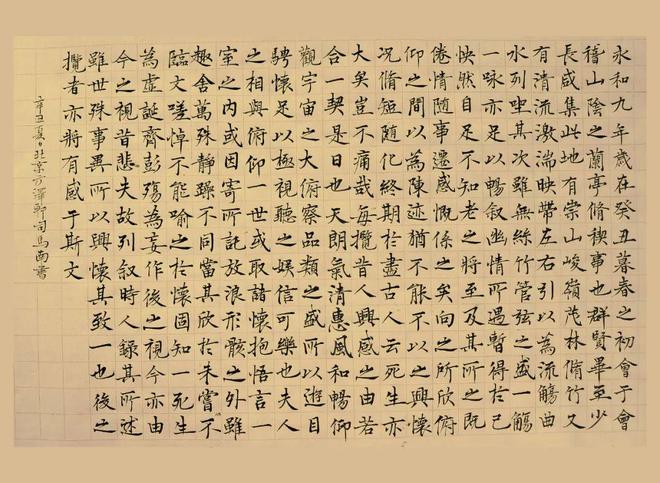 永和九年歲在癸丑暮春之初會于會
稽山陰之蘭亭脩稧事也群賢畢至少
長咸集此地有崇山峻嶺茂林脩竹又
有清流激湍映帶左右引以為流觴曲
水列坐其次雖無絲竹管弦之盛一觴
一咏亦足以暢叙幽情所遇暫得於己
怏然自足不知老之將至及其所之既
倦情隨事遷感慨係之矣向之所欣俯
仰之間以為陳迹猶不能不以之興懷
況脩短隨化終期於盡古人云死生亦
大矣豈不痛哉每攬昔人興感之由若
合一契是日也天朗氣清惠風和暢仰
觀宇宙之大俯察品類之盛所以遊目
騁懷足以極視聽之娛信可樂也夫人
之相與俯仰一世或取諸懷抱悟言一
室之内或因寄所託放浪形骸之外雖
趣舍萬殊静躁不同當其欣於未嘗不
臨文嗟悼不能喻之於懷固知一死生
為虛誕齊彭殤為妄作後之視今亦由
今之視昔悲夫故列叙時人錄其所述
雖世殊事異所以興懷其致一也後之
攬者亦將有感于斯文
辛丑夏北京方澤軒司馬南書